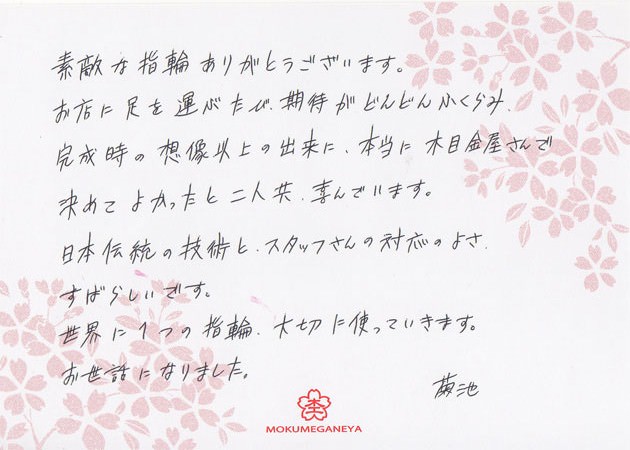 素敵な指輪ありがとうございます。
お店に足を運ぶたび、期待がどんどんふくらみ、
完成時の想像以上の出来に、本当に木目金屋さんで
決めてよかったと二人共、喜んでいます。
日本伝統の技術と、スタッフさんの対応のよさ、
すばらしいです。
世界に1つの指輪、大切に使っていきます。
お世話になりました。
菊池
MOKUMEGANEYA